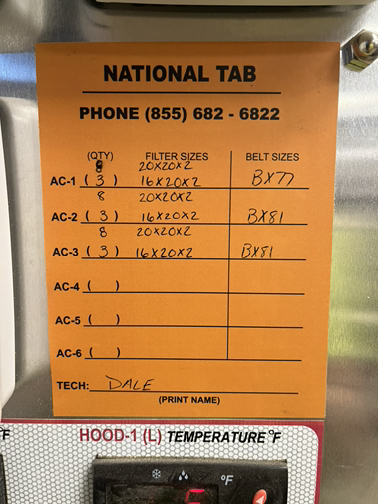 NATIONAL TAB
PHONE (855) 682 - 6822
(QTY) FILTER SIZES BELT SIZES
8 20X20X2
AC-1 (3) 16X20X2 BX77
8 20X20X2
AC-2 (3) 16X20X2 BX81
8 20X20X2
AC-3 (3) 16X20X2 BX81
AC-4 ( )
AC-5 ( )
AC-6 ( )
TECH: DALE
(PRINT NAME)
°F HOOD-1 (L) TEMPERATURE °F
°F